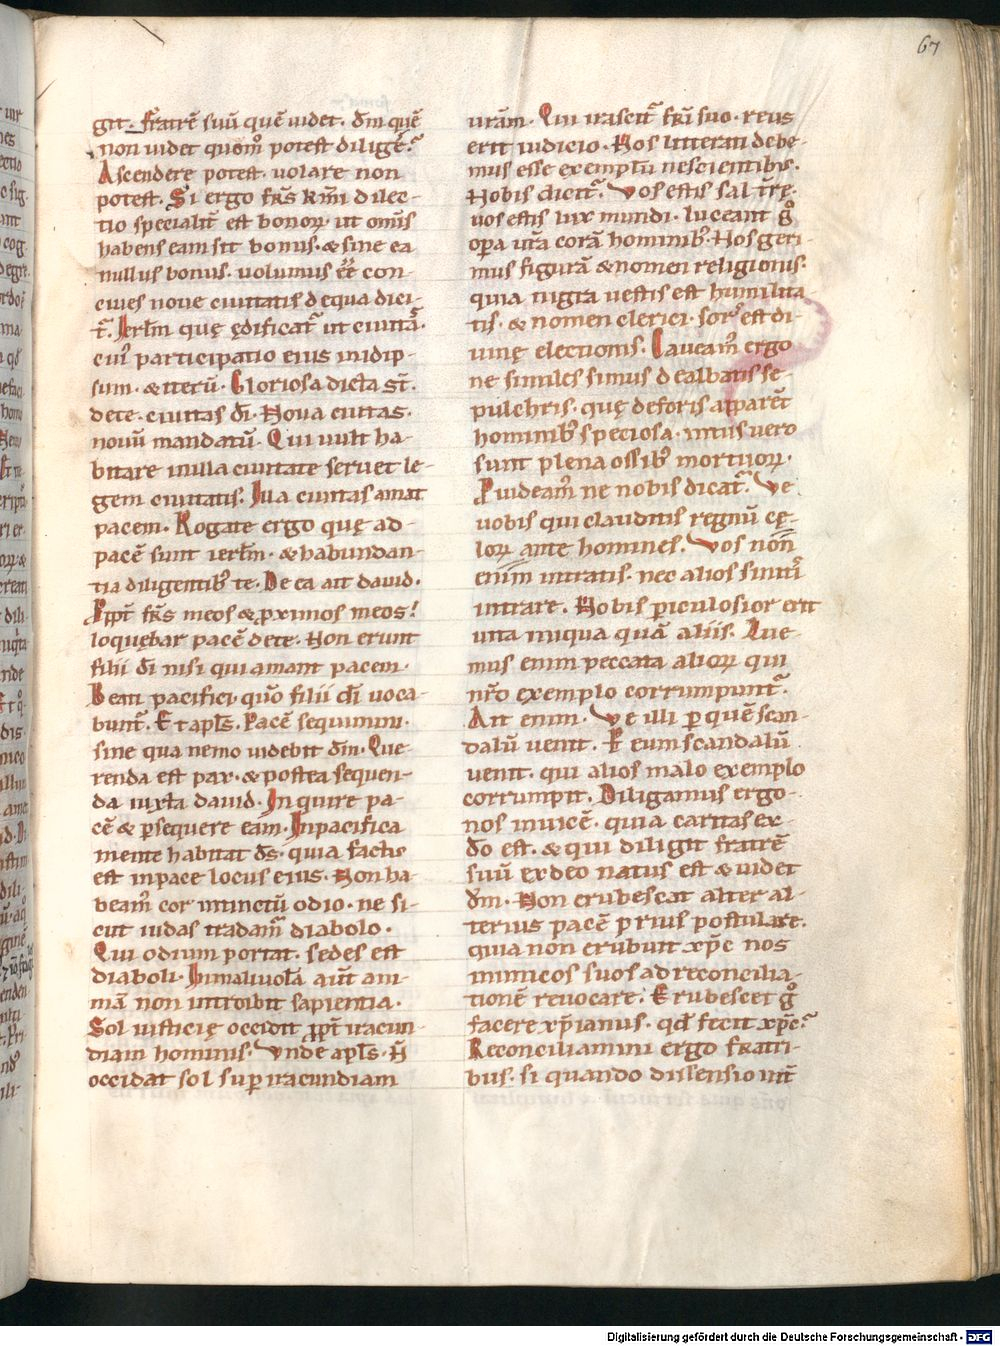 67
git. Fratrē suū quē uidet. dm̄ quē
non uidet quom̊ potest diligeͬ?
Ascendere potest. uolare non
potest. Si ergo fr̄s km̄i dilec-
tio specialit̄ est bonoꝝ. ut omīs
habens eam sit bonus. & sine ea
nullus bonus. uolumus ēē con-
ciues noue ciuitatis de qua dici-
t̄. Ierl̄m quę ędificat̄ ut ciuitā.
cui᾽ participatio eius inidip-
sum. & iterū. Gloriosa dicta st̄.
de te. ciuitas dī. Noua ciuitas.
nouū mandatū. Qui uult ha-
bitare in illa ciuitate seruet le-
gem ciuitatis. Illa ciuitas amat
pacem. Rogate ergo quę ad
pacē sunt ierl̄m. & habundan-
tia diligentib᾽ te. De ea ait dauid.
Ppt̄ fr̄s meos & ꝓximos meos!
loquebar pacē de te. Non erunt
filii dī nisi qui amant pacem.
Beati pacifici. quō filii dī uoca-
bunt̄. Et apl̄s. Pacē sequimini.
sine qua nemo uidebit dm̄. Que-
renda est pax. & postea sequen-
da iuxta dauid. Inquire pa-
cē & ꝑsequere eam. In pacifica
mente habitat ds̄. quia factus
est in pace locus eius. Non ha-
beam᾽ cor intinctū odio. ne si-
cut iudas tradam᾽ diabolo.
Qui odium portat. sedes est
diaboli. In maliuolā aut̄ ani-
mā non introibit sapientia.
Sol iusticię occidit ꝓpt̄ iracun-
diam hominis. Vnde apl̄s. N̄
occidat sol super iracundiam
urām. Qui irascit̄ fr̄i suo. reus
erit iudicio. Nos litterati debe-
mus esse exemplū nescientib᾽.
Nobis dicit̄. Vos estis sal tr̄ę.
uos estis lux mundi. luceant g̊
oꝑa ur̄a corā hominib᾽. Nos geri-
mus figurā & nomen religionis.
quia nigra uestis est humilita-
tis. & nomen clerici. sors est di-
uinę electionis. Caueam᾽ ergo
ne similes simus dealbatis se-
pulchris. quę deforis apparēt
hominib᾽ speciosa. intus uero
sunt plena ossib᾽ mortuoꝝ.
Puideam᾽ ne nobis dicat̄. Ve
uobis qui clauditis regnū cę-
loꝝ ante homines. Vos non
enim intratis. nec alios sinitī
intrare. Nobis ꝑiculosior erit
uita iniqua quā aliis. Lue-
mus enim peccata alioꝝ qui
nr̄o exemplo corrumpunt̄.
Ait enim. Ve illi ꝑ quē scan-
dalū uenit. P eum scandalū
uenit. qui alios malo exemplo
corrumpit. Diligamus ergo
nos inuicē. quia caritas ex
dō est. & qui diligit fratrē
suū ex deo natus est & uidet
dm̄. Non erubescat alter al-
terius pacē prius postulare.
quia non erubuit xp̄c nos
inimicos suos ad reconcilia-
tionē reuocare. Erubescet g̊
facere xp̄ianus. qd̄ fecit xp̄c?
Reconciliamini ergo fratri-
bus. si quando dissensio int̄
Digitalisierung gefördert durch die Deutsche Forschungsgemeinschaft - DFG